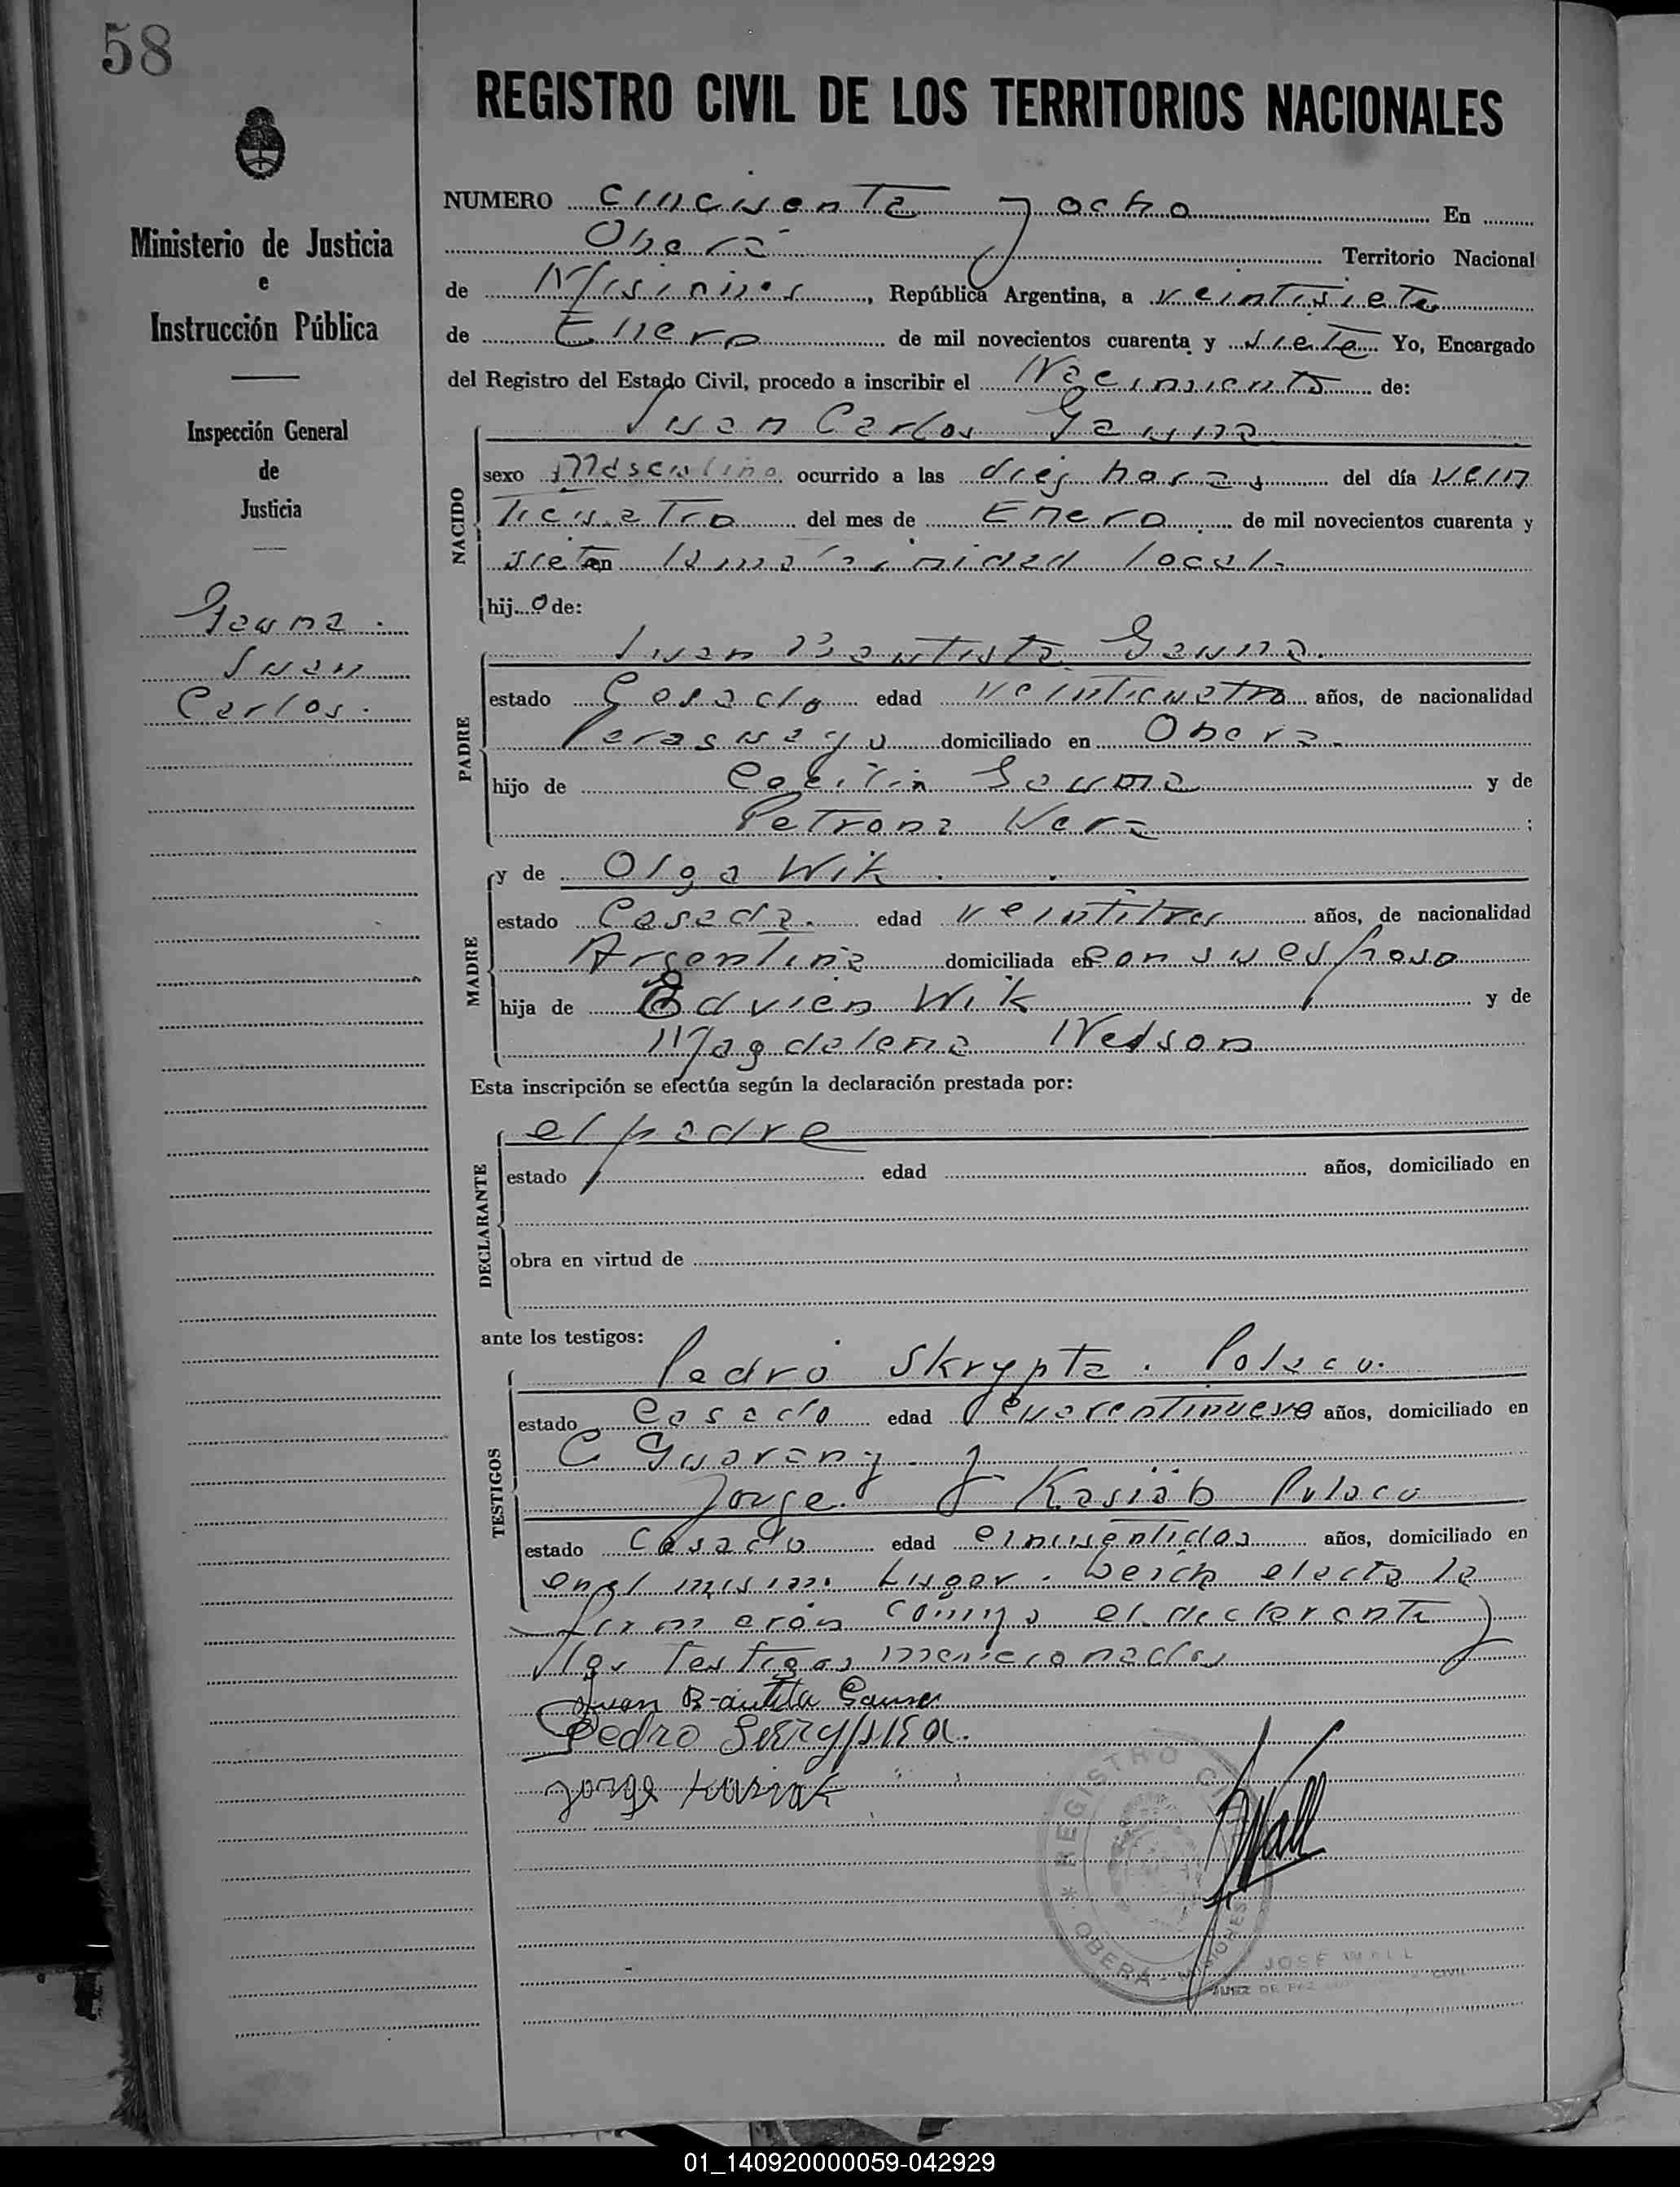 58
REGISTRO CIVIL DE LOS TERRITORIOS NACIONALES
Ministerio de Justicia
e
Instrucción Pública
Inspección General
de
Justicia
Gauna.
Juan
Carlos.
NUMERO cincuenta y ocho En
Oberá Territorio Nacional
de Misiones, República Argentina, a veintisiete
de Enero de mil novecientos cuarenta y siete Yo, Encargado
del Registro del Estado Civil, procedo a inscribir el Nacimiento de:
Juan Carlos Gauna
NACIDO
sexo Masculino ocurrido a las diez horas del día vein
ticuatro del mes de Enero de mil novecientos cuarenta y
siete en la maternidad local.
hijo de:
PADRE
Juan Bautista Gauna.
estado Casado edad veinticuatro años, de nacionalidad
Paraguayo domiciliado en Oberá.
hijo de Gauna y de
Petrona Vera;
MADRE
y de Olga Wik.
estado Casada. edad veintitres años, de nacionalidad
Argentina domiciliada en con su esposo
hija de Edvien Wik y de
Magdalena
Esta inscripción se efectúa según la declaración prestada por:
DECLARANTE
el padre
estado edad años, domiciliado en
obra en virtud de
ante los testigos:
TESTIGOS
Pedro Skrypka. Polaco.
estado Casado edad cuarentinueve años, domiciliado en
C Guarany. y
Jorge Kasiab Polaco
estado Casado edad cincuentidos años, domiciliado en
en el mismo Lugar. el acta la
firmerón conmigo el declarante y
los testigos mencionados
Juan Bautista Gauna
Pedro
Jorge
JWall
REGISTRO CIVIL
OBERÁ - MISIONES
JOSE WALL
JUEZ DE PAZ CIVIL
01_140920000059-042929